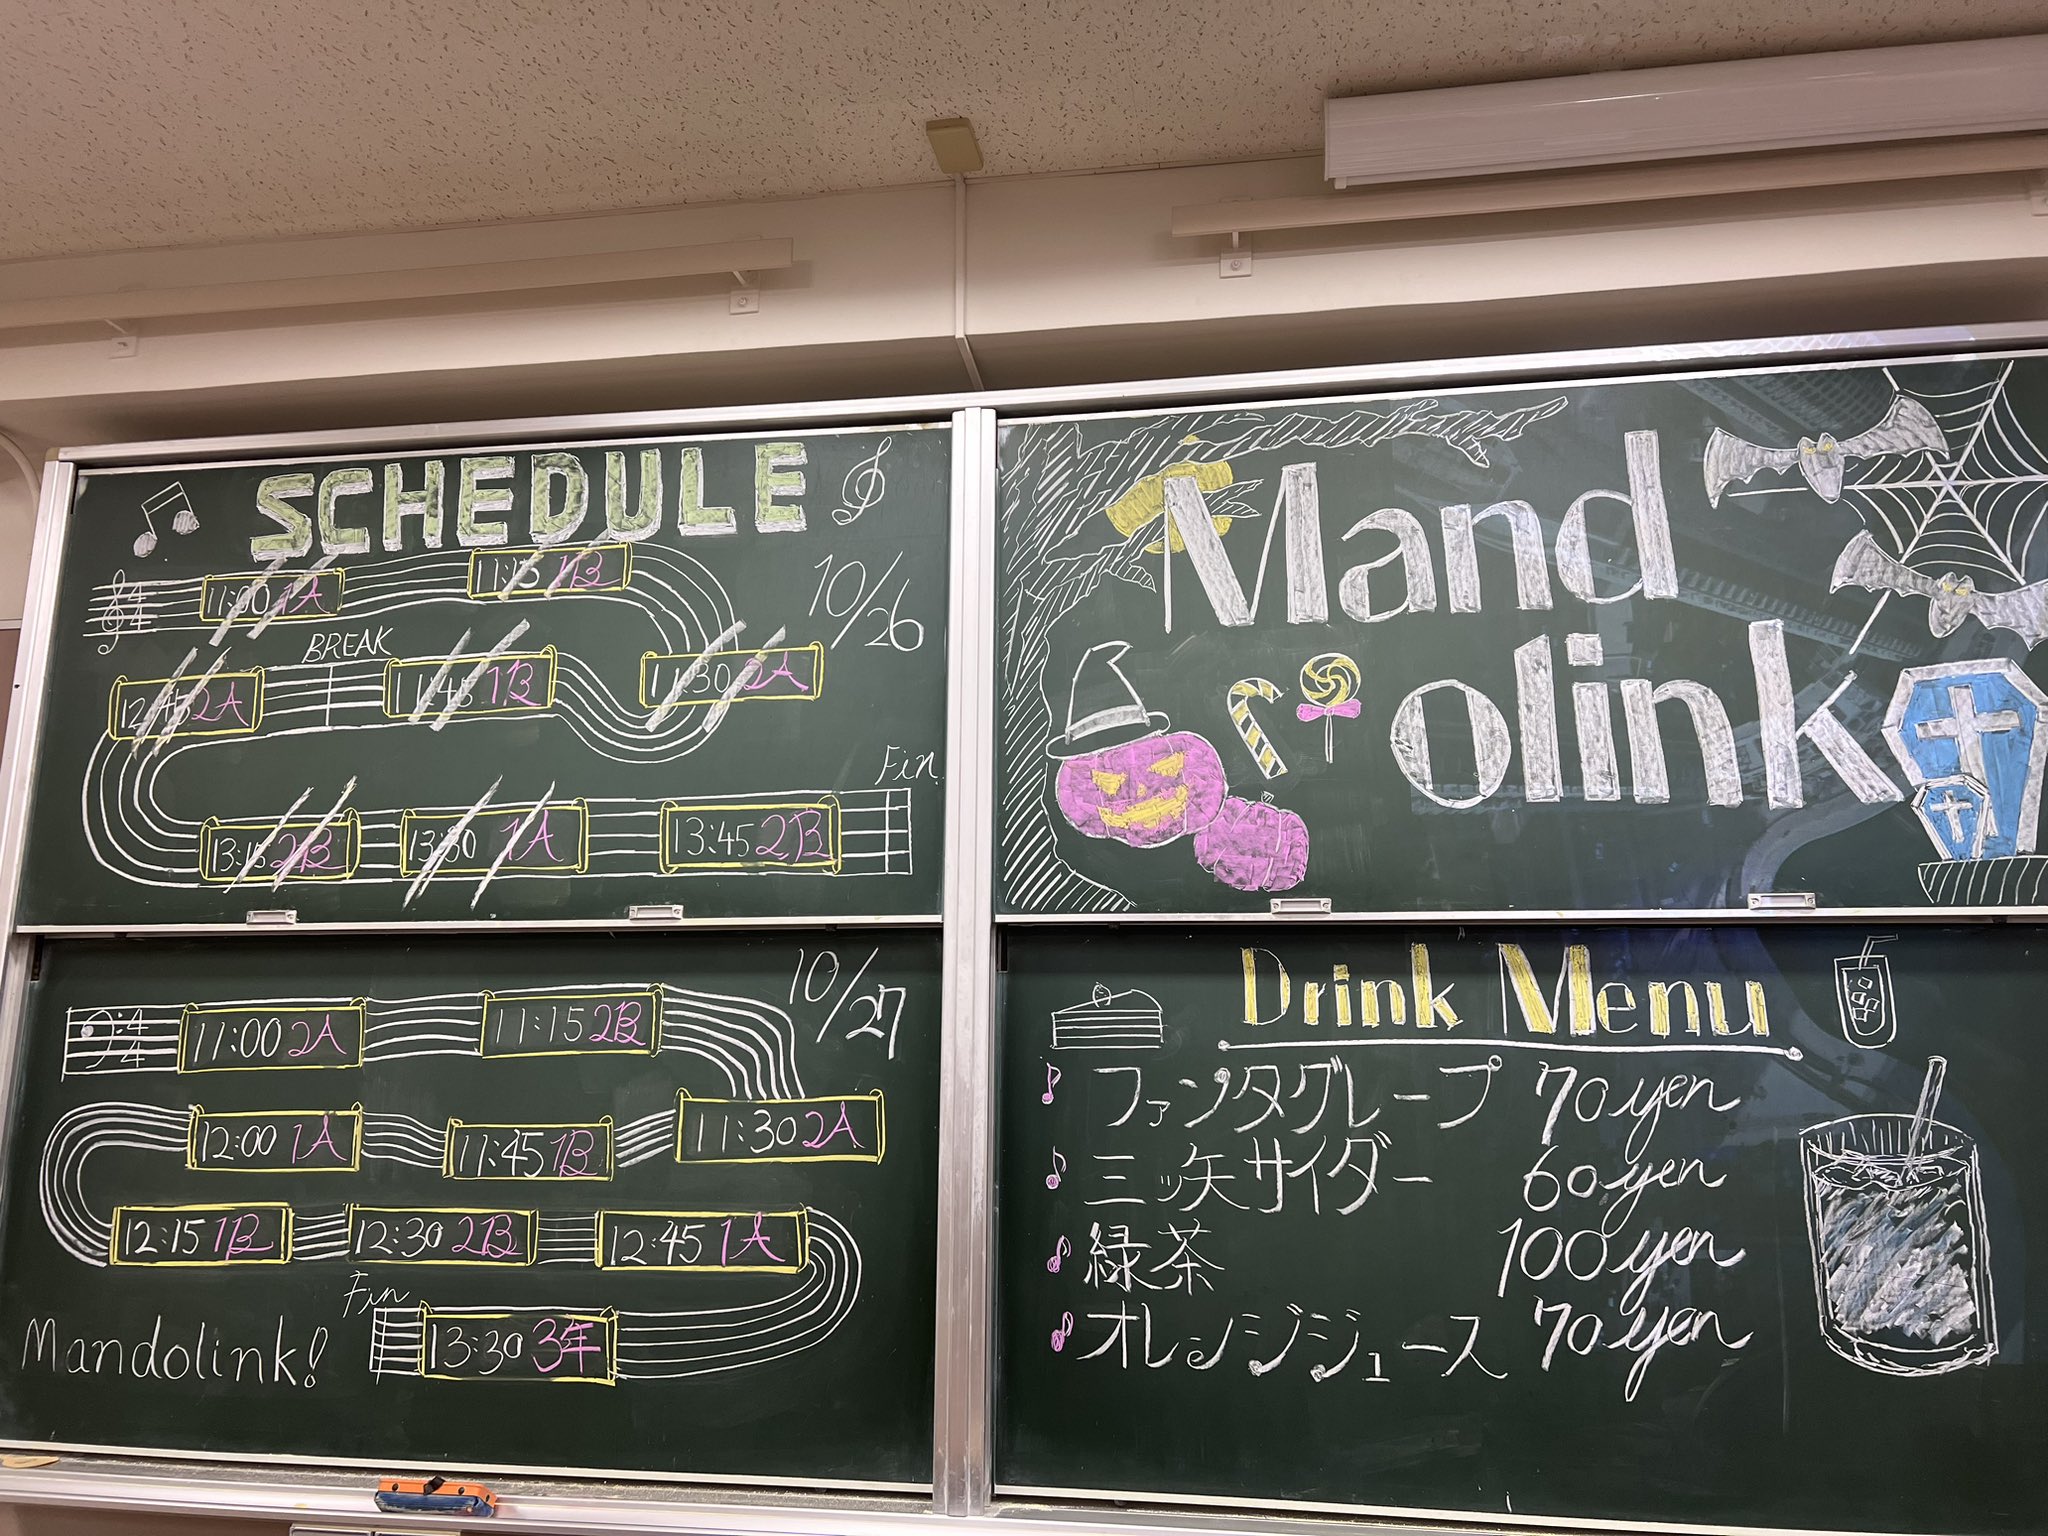 SCHEDULE
10/26
4
4
11:00 1A
11:15 1B
11:30 2A
11:45 1B
BREAK
12:45 2A
13:15 2B
13:30 1A
13:45 2B
Fin
10/27
4
4
11:00 2A
11:15 2B
11:30 2A
11:45 1B
12:00 1A
12:15 1B
12:30 2B
12:45 1A
13:30 3年
Fin
Mandolink!
Mand
olink
Drink Menu
ファンタグレープ 70yen
三ッ矢サイダー 60yen
緑茶 100yen
オレンジジュース 70yen